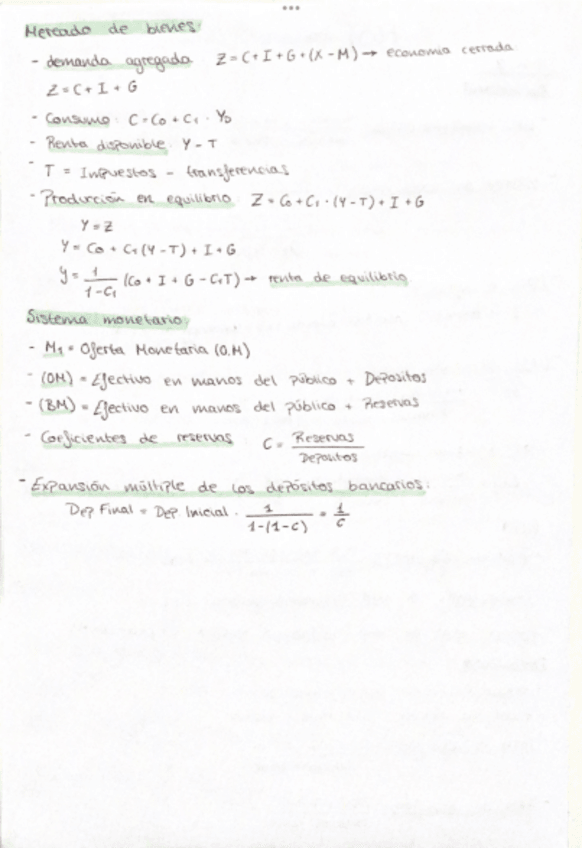 Mercado de bienes:
- demanda agregada Z = C + I + G + (X - M) → economia cerrada
Z = C + I + G
- Consumo: C = Co + C1 · YD
- Renta disponible: Y - T
- T = Impuestos - transferencias
- Producción en equilibrio: Z = Co + C1 · (Y - T) + I + G
Y = Z
Y = Co + C1 (Y - T) + I + G
y = 1/(1 - C1) (Co + I + G - C1T) → renta de equilibrio
Sistema monetario:
- M1 = Oferta Monetaria (O.M)
- (OM) = Efectivo en manos del público + Depositos
- (BM) = Efectivo en manos del público + Reservas
- Coeficientes de reservas C = Reservas/Depositos
- Expansión múltiple de los depósitos bancarios:
Dep Final = Dep Inicial · 1/(1 - (1 - C)) = 1/C